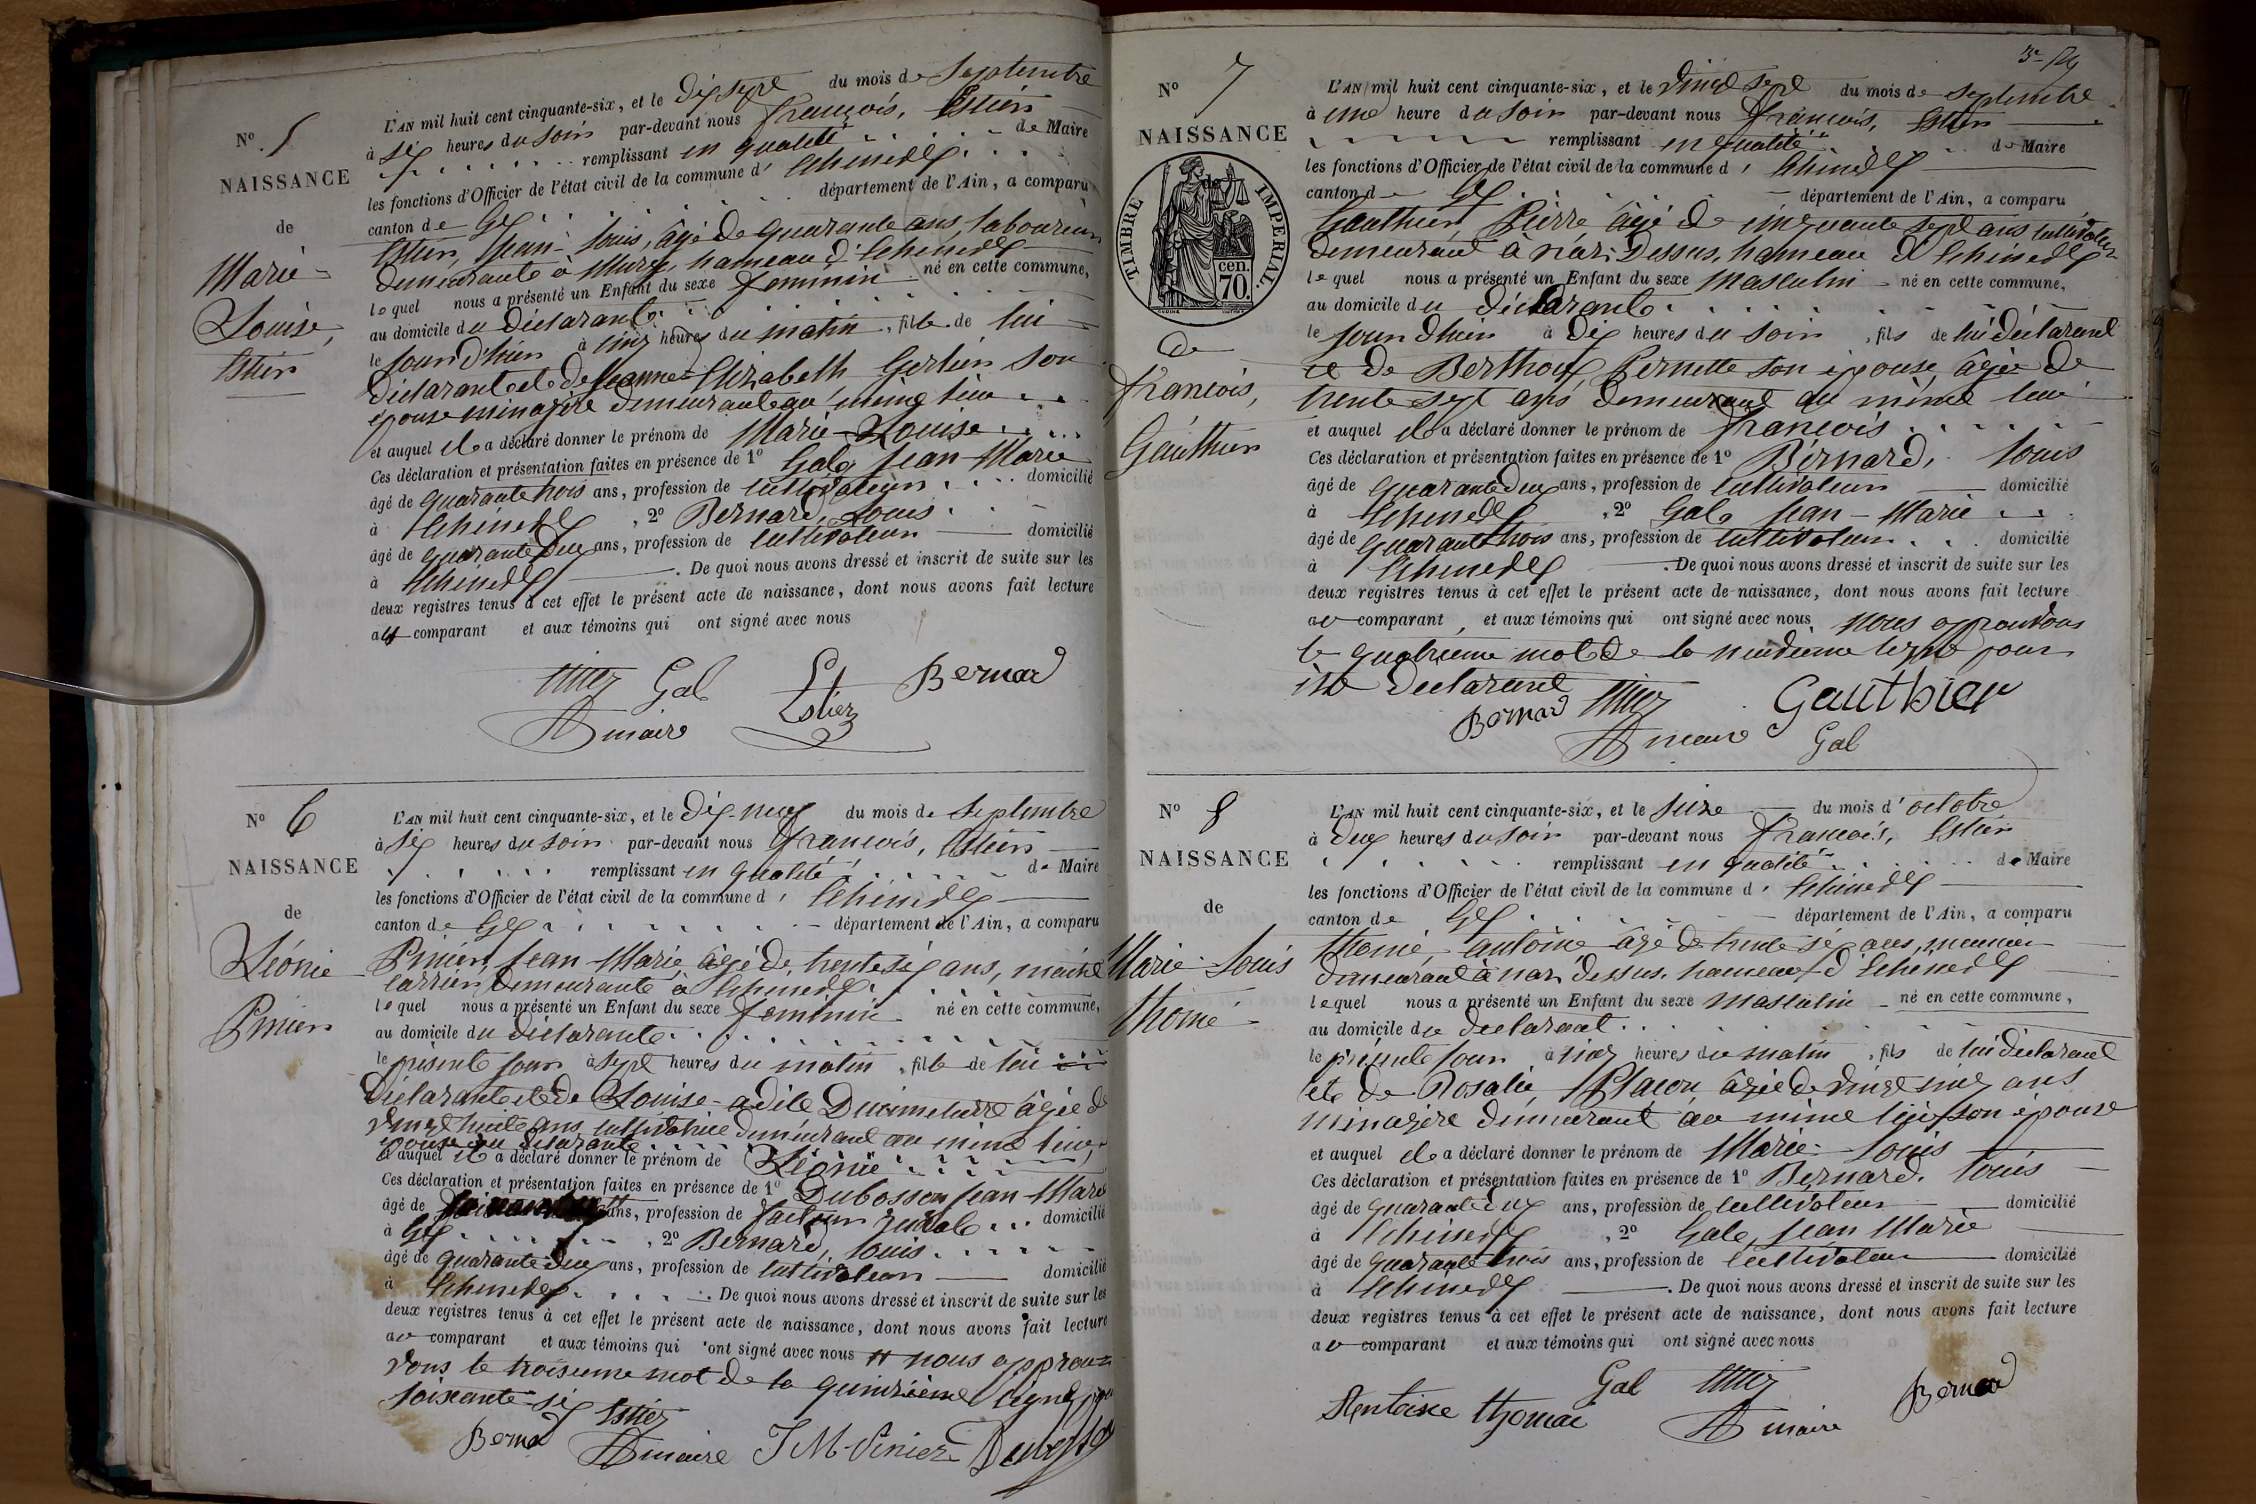 N° 5
NAISSANCE
de
Marie-
Louise,
Estier
L'AN mil huit cent cinquante-six, et le dix sept du mois de Septembre
à six heures du soir par-devant nous François, Estier
remplissant en qualité de Maire
les fonctions d'Officier de l'état civil de la commune d' Echenevex
canton de Gex département de l'Ain, a comparu
Estier, Jean-Louis, âgé de quarante ans, laboureur
demeurant à Mury, hameau d'Echenevex
lequel nous a présenté un Enfant du sexe féminin né en cette commune,
au domicile du déclarant
le jourd'hier à cinq heures du matin, fille de lui
déclarant et de Jeanne-Elizabeth Gerlier son
épouse ménagère demeurante au même lieu
et auquel il a déclaré donner le prénom de Marie-Louise
Ces déclaration et présentation faites en présence de 1° Gale Jean-Marie
âgé de quarante trois ans, profession de cultivateur domicilié
à Echenevex, 2° Bernard, Louis
âgé de quarante deux ans, profession de cultivateur domicilié
à Echenevex. De quoi nous avons dressé et inscrit de suite sur les
deux registres tenus à cet effet le présent acte de naissance, dont nous avons fait lecture
au comparant et aux témoins qui ont signé avec nous
Estier Gal Estier Bernard
maire
N° 6
NAISSANCE
de
Léonie
Pinier
L'AN mil huit cent cinquante-six, et le dix-neuf du mois de Septembre
à six heures du soir par-devant nous François, Estier
remplissant en qualité de Maire
les fonctions d'Officier de l'état civil de la commune d' Echenevex
canton de Gex département de l'Ain, a comparu
Pinier, Jean-Marie âgé de trente six ans, maître
carrier, demeurant à Echenevex
lequel nous a présenté un Enfant du sexe féminin né en cette commune,
au domicile du déclarant
le présent jour à sept heures du matin, fille de lui
déclarant et de Louise-adèle Ducimetierre âgée de
vingt huit ans, cultivatrice demeurant au même lieu,
épouse du déclarant
et auquel il a déclaré donner le prénom de Léonie
Ces déclaration et présentation faites en présence de 1° Dubosson Jean-Marie
âgé de ans, profession de facteur rural domicilié
à Gex, 2° Bernard, Louis
âgé de quarante deux ans, profession de cultivateur domicilié
à Echenevex. De quoi nous avons dressé et inscrit de suite sur les
deux registres tenus à cet effet le présent acte de naissance, dont nous avons fait lecture
au comparant et aux témoins qui ont signé avec nous nous approu-
vons le troisième mot de la quinzième ligne pour
soixante-six Estier
Bernard maire J M Pinier Dubosson
3e
N° 7
NAISSANCE
TIMBRE IMPERIAL.
70 cen.
de
François,
Gauthier
L'AN mil huit cent cinquante-six, et le vingt sept du mois de Septembre
à une heure du soir par-devant nous François, Estier
remplissant en qualité de Maire
les fonctions d'Officier de l'état civil de la commune d' Echenevex
canton de Gex département de l'Ain, a comparu
Gauthier, Pierre âgé de cinquante sept ans cultivateur
demeurant à naz-Dessus, hameau d'Echenevex
lequel nous a présenté un Enfant du sexe masculin né en cette commune,
au domicile du déclarant
le jourd'hier à dix heures du soir, fils de lui déclarant
et de Berthoux Pernette son épouse, âgée de
trente sept ans demeurant au même lieu
et auquel il a déclaré donner le prénom de François
Ces déclaration et présentation faites en présence de 1° Bernard, Louis
âgé de quarante deux ans, profession de cultivateur domicilié
à Echenevex, 2° Gale Jean-Marie
âgé de quarante trois ans, profession de cultivateur domicilié
à Echenevex. De quoi nous avons dressé et inscrit de suite sur les
deux registres tenus à cet effet le présent acte de naissance, dont nous avons fait lecture
au comparant, et aux témoins qui ont signé avec nous nous approuvons
le quatrième mot de la neuvième ligne pour
être déclarant
Bernard Estier Gauthier
maire Gal
N° 8
NAISSANCE
de
Marie-Louis
Thomé
L'AN mil huit cent cinquante-six, et le seize du mois d'octobre
à deux heures du soir par-devant nous François, Estier
remplissant en qualité de Maire
les fonctions d'Officier de l'état civil de la commune d' Echenevex
canton de Gex département de l'Ain, a comparu
Thomé, antoine âgé de trente six ans, meunier
demeurant à naz dessus, hameau d'Echenevex
lequel nous a présenté un Enfant du sexe masculin né en cette commune,
au domicile du déclarant
le présent jour à cinq heures du matin, fils de lui déclarant
et de Rosalie, âgée de vingt cinq ans
ménagère demeurant au même lieu son épouse
et auquel il a déclaré donner le prénom de Marie-Louis
Ces déclaration et présentation faites en présence de 1° Bernard, Louis
âgé de quarante deux ans, profession de cultivateur domicilié
à Echenevex, 2° Gale, Jean Marie
âgé de quarante trois ans, profession de cultivateur domicilié
à Echenevex. De quoi nous avons dressé et inscrit de suite sur les
deux registres tenus à cet effet le présent acte de naissance, dont nous avons fait lecture
au comparant et aux témoins qui ont signé avec nous
Gal Estier Bernard
Antoine thomé maire